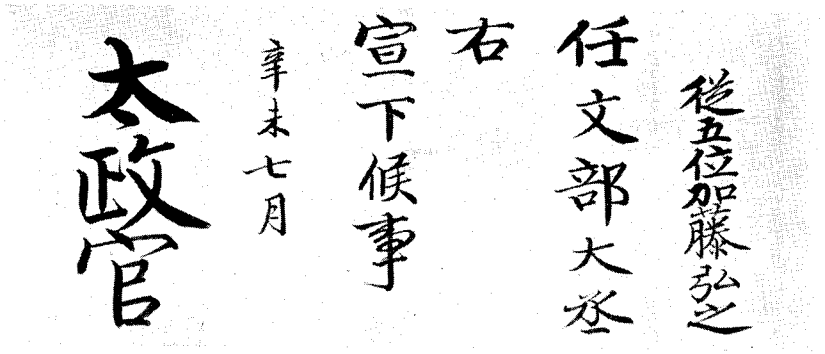 従五位加藤弘之
任文部大丞
右
宣下候事
辛未七月
太政官